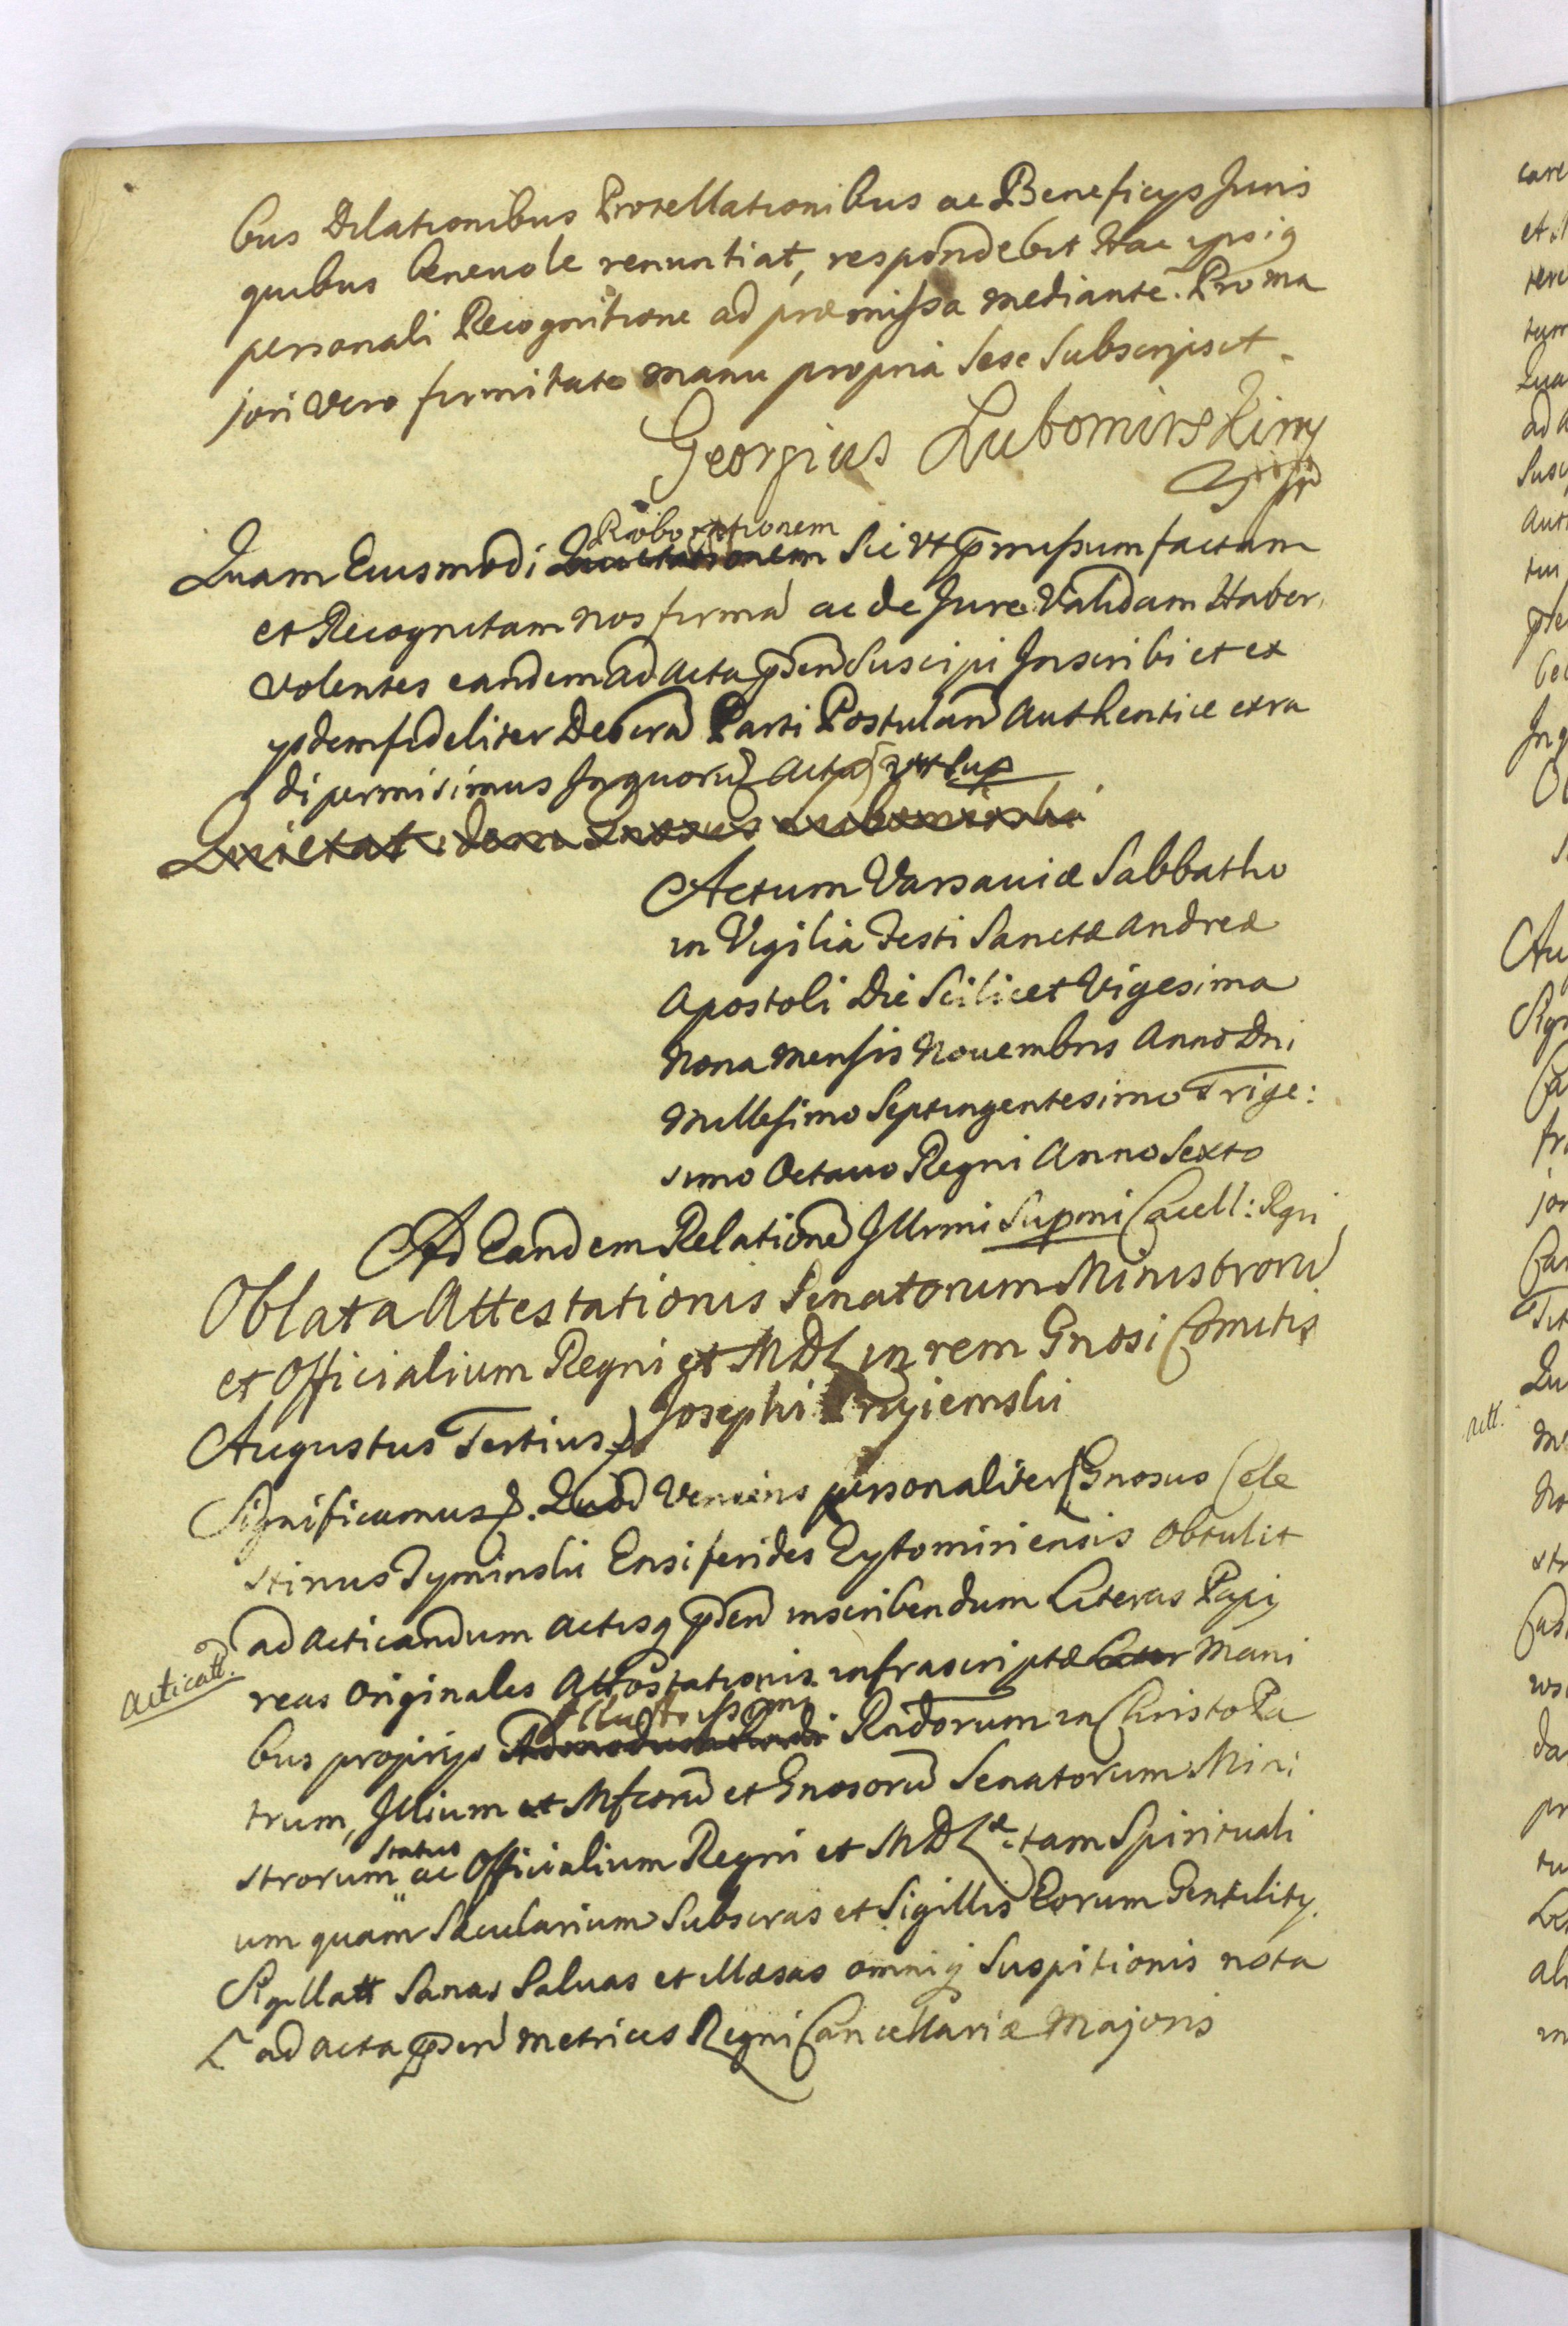 bus Dilationibus Protellationibus ac Beneficys Juris
quibus beneuole renuntiat, respondebit Hac ipsiq
personali Recognitione ad præmissa mediante. Pro ma
jori vero firmitate manu propria sese subscripsit.
Georgius Lubomirski mp
Roborationem
Quam Eiusmodi Quietationem Sic vt pmissum factam
et Recognitam nos firma ac de Jure Validam Haber
volentes eandem ad acta pden Suscipi Inscribi et ex
ysdem fideliter Descra Parti Postulan Authentice extra
di permisimus In quoru Acta vt sup
Quietat idem Gnosus Lubomirski
Actum Varsauiæ Sabbatho
in Vigilia Festi Sanctæ Andreæ
Apostoli Die Scilicet Vigesima
Nona Mensis Nouembris Anno Dni
Millesimo Septingentesimo Trige:
simo Octauo Regni Anno Sexto
Ad Eandem Relatione Illrmi Supmi Cacell: Rgni
Oblata Attestationis Senatorum Ministroru
et Officialium Regni et MDL in rem Gnosi Comitis
Josephi Przyiemski
Augustus Tertius
Significamus. Quod Veniens personaliter Gnosus Cele
stinus Tyminski Ensiferides Zytomiriensis obtulit
ad acticandum actisq pden inscribendum Literas Papy
acticatt.
reas Originales Attestationis infrascriptæ Mani
Illustrissimi
bus proprys Admodum Rndorum in Christo Pa
trum, Illium et Mfcoru et Gnosoru Senatorum Mini
status
strorum ac Officialium Regni et MDL tam Spirituali
um quam Sæcularium Subscras et Sigillis Eorum Gentility
Sigillatt Sanas Saluas et illæsas omniq Suspitionis nota
ad acta pden Metrices Regni Cancellariæ Majoris